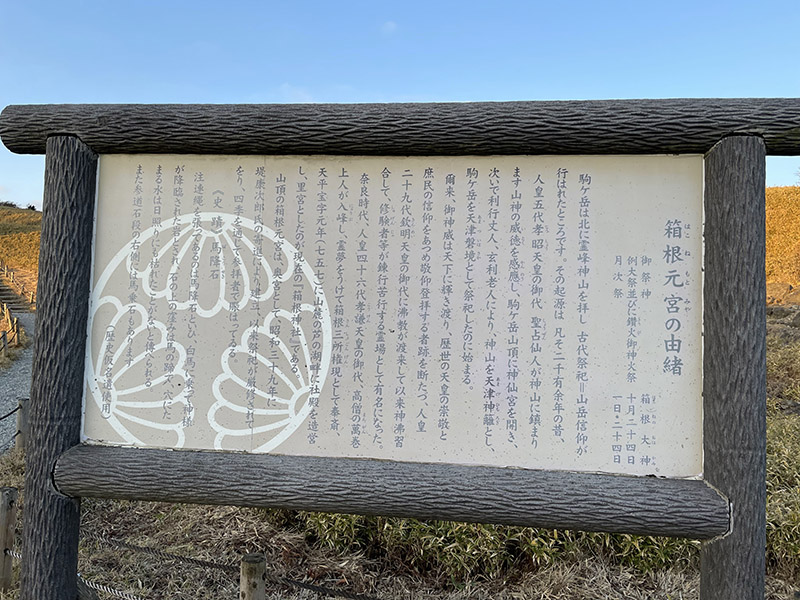 箱根元宮の由緒
はこねもとみや
御祭神 箱根大神
例大祭並びに鑽火御神火祭 十月二十四日
月次祭 一日・二十四日
駒ケ岳は北に霊峰神山を拝し 古代祭祀＝山岳信仰が
行はれたところです。その起源は 凡そ二千有余年の昔、
人皇五代孝昭天皇の御代 聖占仙人が神山に鎮まり
ます山神の威徳を感應し、駒ケ岳山頂に神仙宮を開き、
次いで利行丈人、玄利老人により、神山を天津神籬とし、
駒ケ岳を天津磐境として祭祀したのに始まる。
爾来、御神威は天下に輝き渡り、歴世の天皇の崇敬と
庶民の信仰をあつめ敬仰登拝する者跡を断たつ、人皇
二十九代欽明天皇の御代に沸教が渡来して以来神沸習
合して、修験者等が錬行苦行する霊場として有名になった。
奈良時代、人皇四十六代孝徳天皇の御代、高僧の萬巻
上人が入峰し、霊夢をうけて箱根三所権現として奉斎、
天平宝字元年（七五七）山麓の芦の湖畔に社殿を造営
し、里宮としたのが現在の「箱根神社」である。
山頂の箱根元宮は、奥宮として、昭和三十九年に
堤康次郎氏の寄進により建立、以来祭祀が厳修されて
をり、四季を通じて参拝者で賑はってゐる。
《史蹟》馬降石
注連縄を張ってあるのは馬降石といひ、白馬に乗って神様
が降臨された岩とされ、石の上の窪みは馬の蹄で、穴にた
まる水は日照りにも涸れたことがないと伝へられる。
また参道石段の右側には馬乗石もあります。
（歴史仮名遣使用）